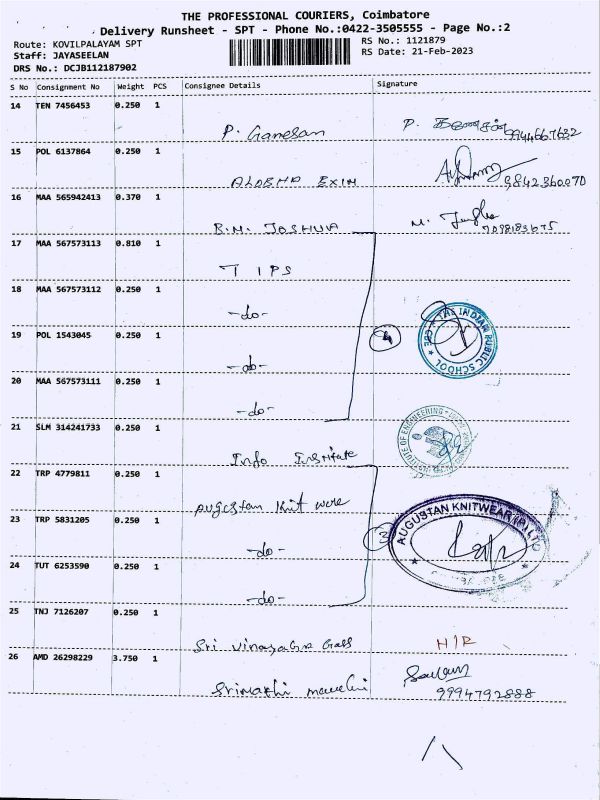 THE PROFESSIONAL COURIERS, Coimbatore
Delivery Runsheet - SPT - Phone No.:0422-3505555 - Page No.:2
Route: KOVILPALAYAM SPT
Staff: JAYASEELAN
DRS No.: DCJB112187902
RS No.: 1121879
RS Date: 21-Feb-2023
S No Consignment No Weight PCS Consignee Details Signature
14 TEN 7456453 0.250 1
P. Ganesan P. 9944667632
15 POL 6137864 0.250 1
ALOEHA EXIM 9842360070
16 MAA 565942413 0.370 1
B.M. JOSHUA M.
17 MAA 567573113 0.810 1
TIPS
18 MAA 567573112 0.250 1
-do-
THE INDIAN PUBLIC SCHOOL
CBE
19 POL 1543045 0.250 1
4
-do-
20 MAA 567573111 0.250 1
-do-
21 SLM 314241733 0.250 1
INSTITUTE OF ENGINEERING
Info Institute
22 TRP 4779811 0.250 1
Augustan Knit were
AUGUSTAN KNITWEAR (P) LTD
23 TRP 5831205 0.250 1
3
-do-
24 TUT 6253590 0.250 1
-do-
25 TNJ 7126207 0.250 1
Sri Vinayaga Gass H/R
26 AMD 26298229 3.750 1
9994792888